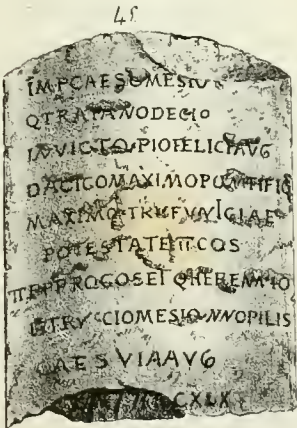 45
IMPCAESGMESIV
QTRAIANODECIO
INVICTO·PIOFELICIAVG
DACICOMAXIMOPONTIFIC
MAXIMO·TRIBVNICIAE
POTESTATEIICOS
IIPPPROCOSEIQHERENNIO
ETRVSCIOMESIONNOPILIS
CAESVIAAVG
CXLX